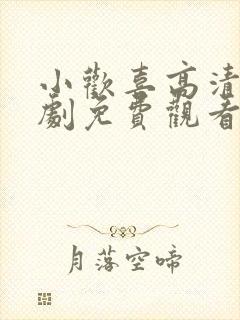 小歡喜高清
劇免費觀看
月落空啼